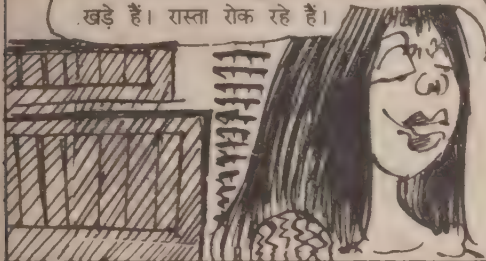 खड़े हैं। रास्ता रोक रहे हैं।